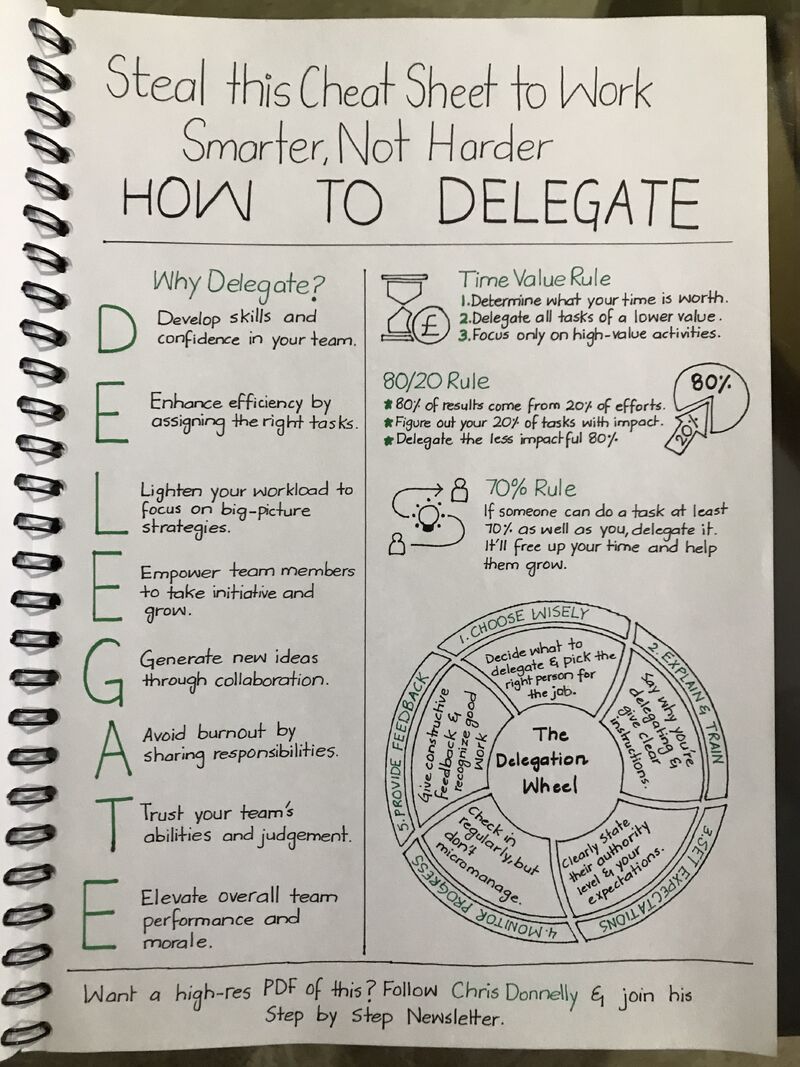 Steal this Cheat Sheet to Work
Smarter, Not Harder
HOW TO DELEGATE
Why Delegate?
D
Develop skills and
confidence in your team.
E
Enhance efficiency by
assigning the right tasks.
L
Lighten your workload to
focus on big-picture
strategies.
E
Empower team members
to take initiative and
grow.
G
Generate new ideas
through collaboration.
A
Avoid burnout by
sharing responsibilities.
T
Trust your team's
abilities and judgement.
E
Elevate overall team
performance and
morale.
£
Time Value Rule
1. Determine what your time is worth.
2. Delegate all tasks of a lower value.
3. Focus only on high-value activities.
80/20 Rule
★ 80% of results come from 20% of efforts.
★ Figure out your 20% of tasks with impact.
★ Delegate the less impactful 80%
80%
20%
70% Rule
If someone can do a task at least
70% as well as you, delegate it.
It'll free up your time and help
them grow.
The
Delegation
Wheel
1. CHOOSE WISELY
Decide what to
delegate & pick the
right person for
the job.
2. EXPLAIN & TRAIN
Say why you're
delegating &
give clear
instructions.
3. SET EXPECTATIONS
Clearly State
their authority
level & your
expectations.
4. MONITOR PROGRESS
Check in
regularly, but
don't
micromanage.
5. PROVIDE FEEDBACK
Give constructive
Feedback &
recognize good
Work
Want a high-res PDF of this? Follow Chris Donnelly & join his
Step by Step Newsletter.